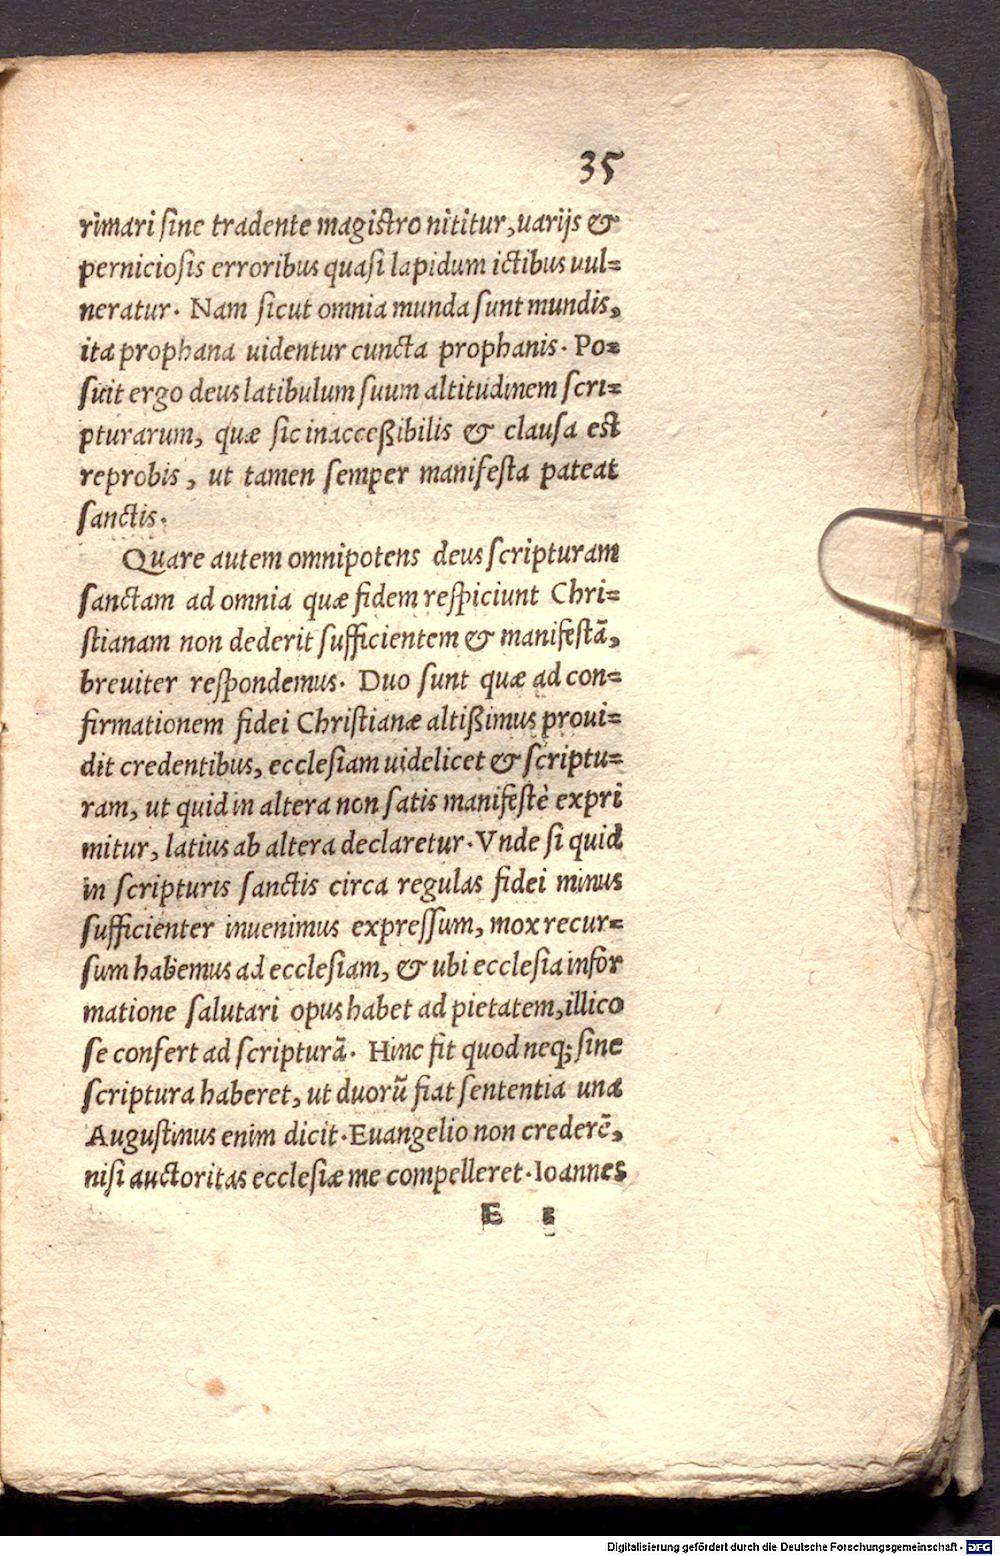 35
rimari sine tradente magistro nititur, uarijs &
perniciosis erroribus quasi lapidum ictibus uul=
neratur. Nam sicut omnia munda sunt mundis,
ita prophana uidentur cuncta prophanis. Po=
suit ergo deus latibulum suum altitudinem scri=
pturarum, quæ sic inacceßibilis & clausa est
reprobis, ut tamen semper manifesta pateat
sanctis.
Quare autem omnipotens deus scripturam
sanctam ad omnia quæ fidem respiciunt Chri=
stianam non dederit sufficientem & manifestã,
breuiter respondemus. Duo sunt quæ ad con=
firmationem fidei Christianæ altißimus proui=
dit credentibus, ecclesiam uidelicet & scriptu=
ram, ut quid in altera non satis manifestè expri
mitur, latius ab altera declaretur. Vnde si quid
in scripturis sanctis circa regulas fidei minus
sufficienter inuenimus expressum, mox recur=
sum habemus ad ecclesiam, & ubi ecclesia infor
matione salutari opus habet ad pietatem, illico
se confert ad scripturã. Hinc fit quod neq; sine
scriptura haberet, ut duorũ fiat sententia una
Augustinus enim dicit. Euangelio non crederẽ,
nisi auctoritas ecclesiæ me compelleret. Ioannes
E
Digitalisierung gefördert durch die Deutsche Forschungsgemeinschaft - DFG